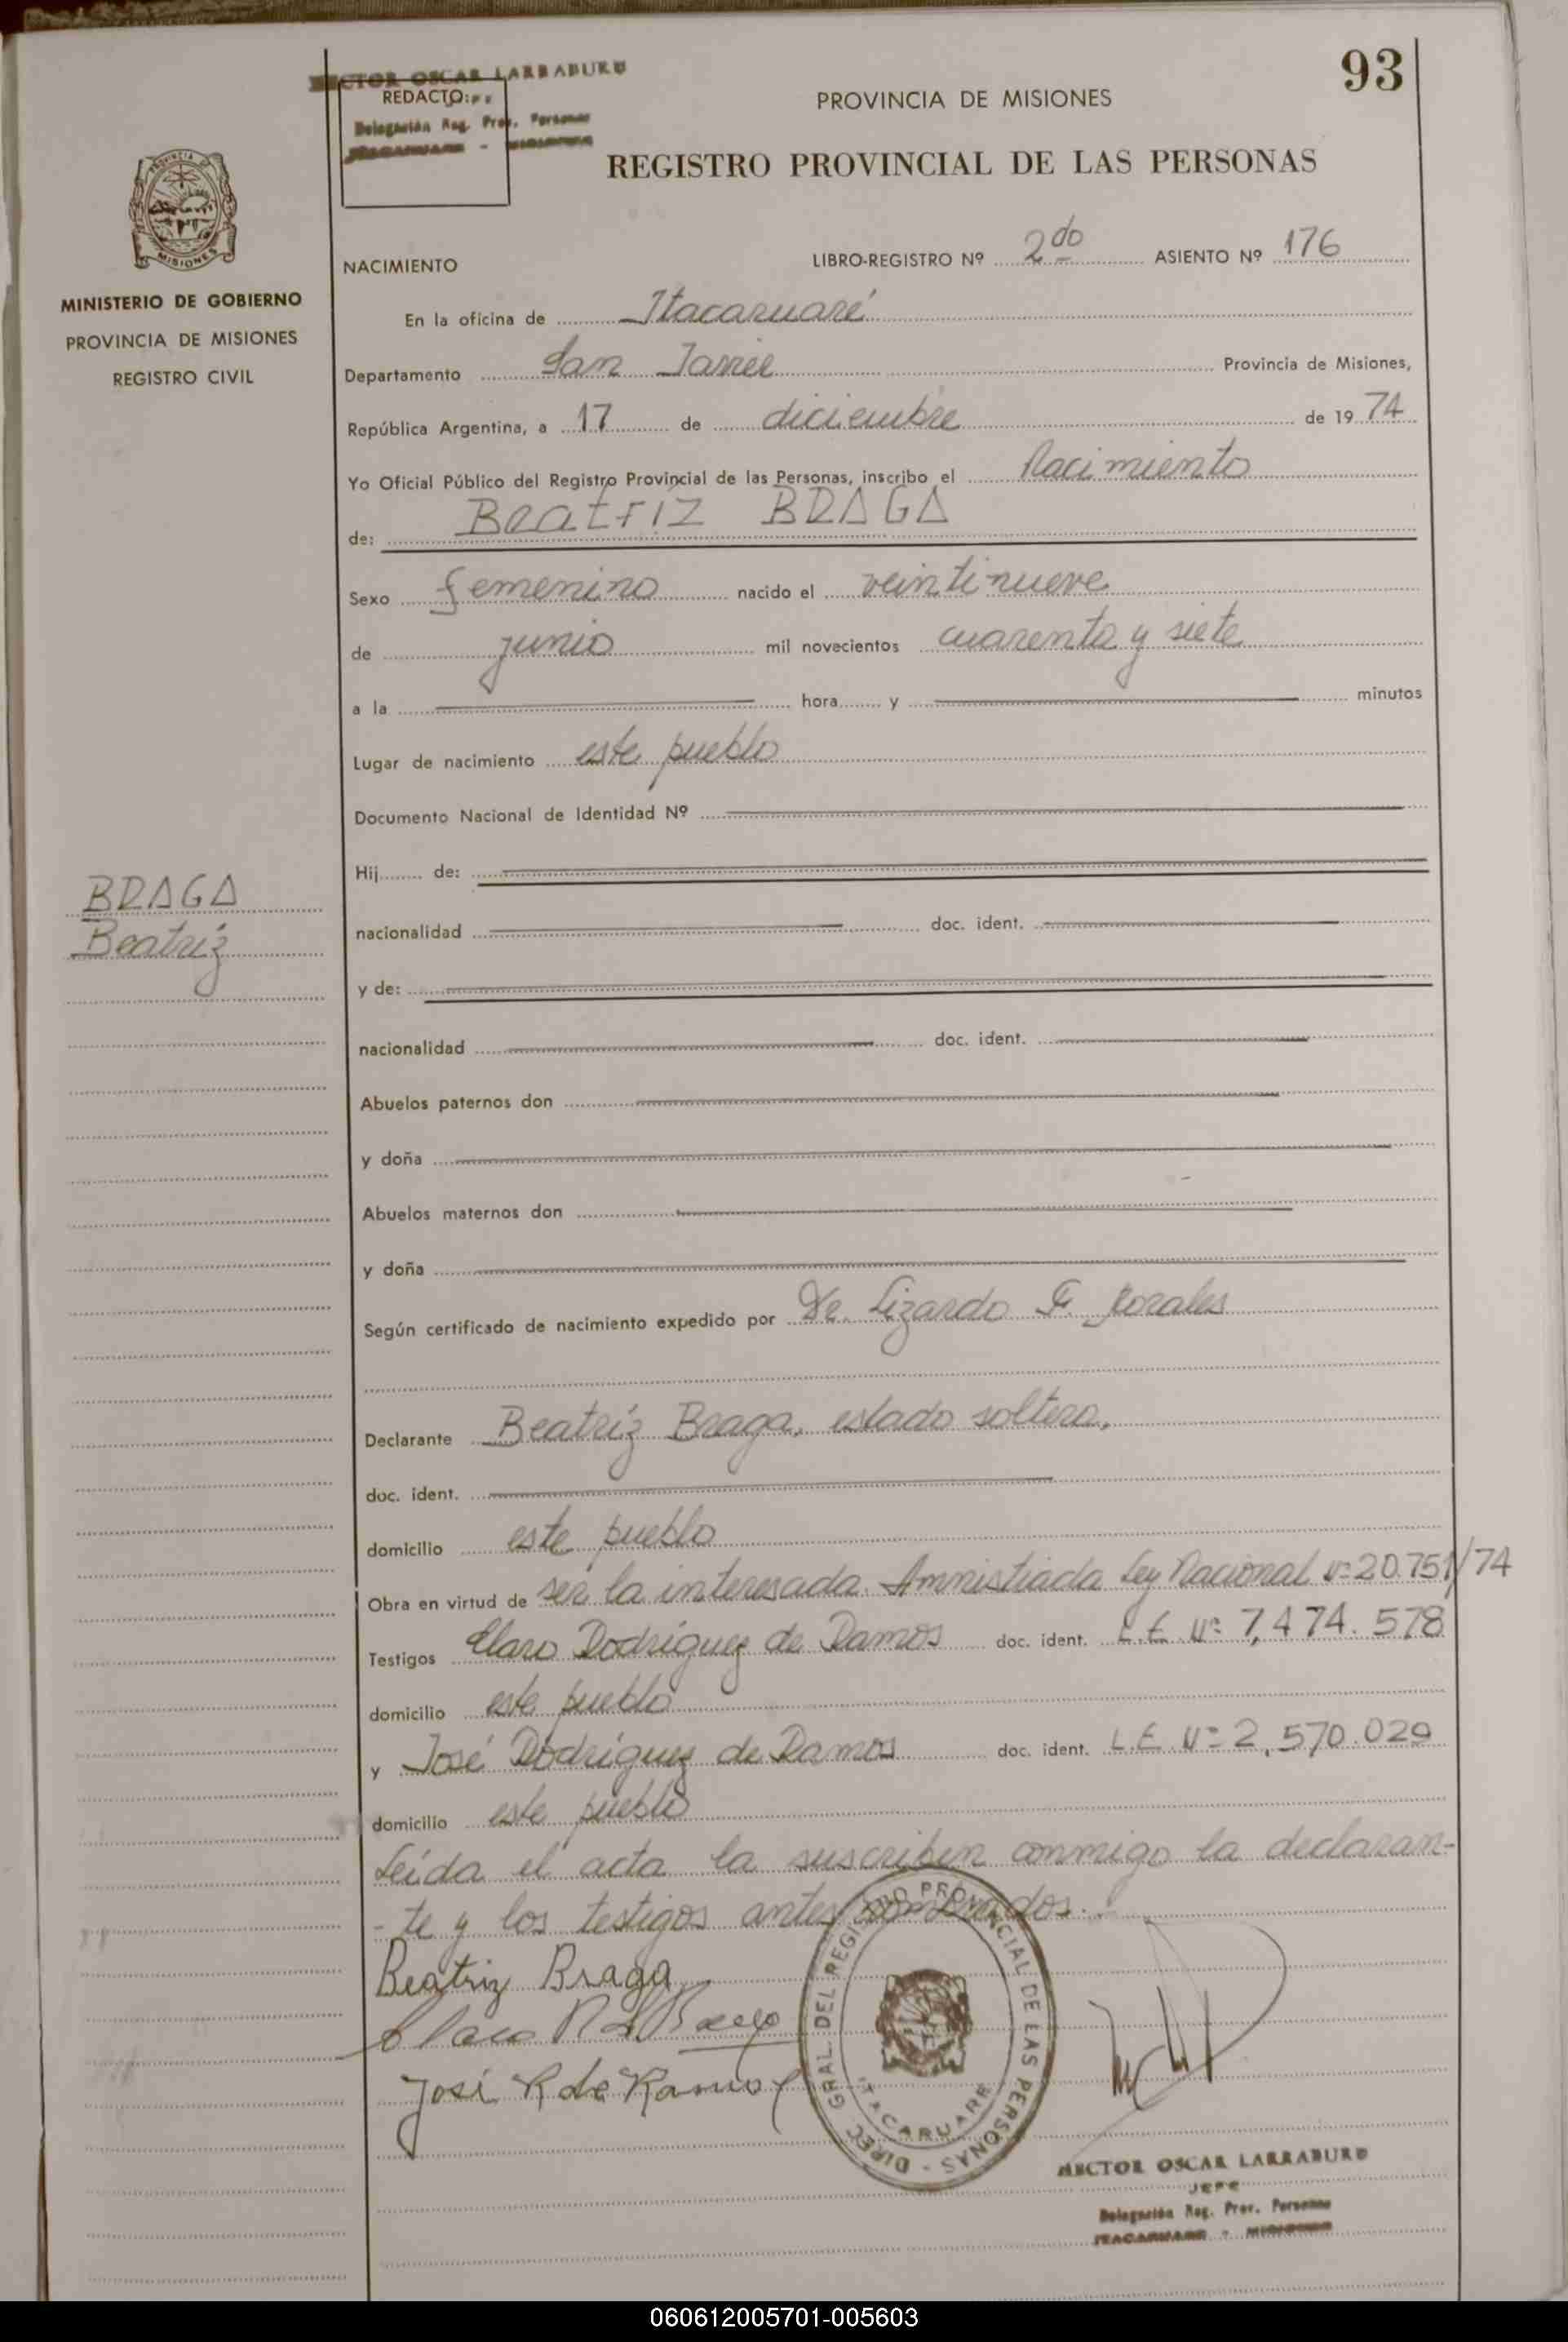 93
HECTOR OSCAR LARRABURU
REDACTO:
Delegación Reg. Prov. Personas
ITACARUARE - MISIONES
PROVINCIA DE MISIONES
REGISTRO PROVINCIAL DE LAS PERSONAS
PROVINCIA DE
MISIONES
MINISTERIO DE GOBIERNO
PROVINCIA DE MISIONES
REGISTRO CIVIL
NACIMIENTO LIBRO-REGISTRO Nº 2do ASIENTO Nº 176
En la oficina de Itacaruaré
Departamento San Javier Provincia de Misiones,
República Argentina, a 17 de diciembre de 19 74
Yo Oficial Público del Registro Provincial de las Personas, inscribo el Nacimiento
de: Beatriz BRAGA
Sexo femenino nacido el veintinueve
de junio mil novecientos cuarenta y siete
a la hora y minutos
Lugar de nacimiento este pueblo
Documento Nacional de Identidad Nº
Hij de:
BRAGA
Beatríz
nacionalidad doc. ident.
y de:
nacionalidad doc. ident.
Abuelos paternos don
y doña
Abuelos maternos don
y doña
Según certificado de nacimiento expedido por Dr. Lizardo F.
Declarante Beatríz Braga, estado soltera,
doc. ident.
domicilio este pueblo
Obra en virtud de ser la interesada. Amnistiada Ley Nacional nº 20.751/74
Testigos Claro Rodríguez de Ramos doc. ident. L.E. Nº 7,474.578
domicilio este pueblo
y José Rodríguez de Ramos doc. ident. L.E. Nº 2,570.029
domicilio este pueblo
Leída el acta la suscriben conmigo la declaran-
-te y los testigos antes nombrados.
Beatriz Braga
José R de Ramos
DIREC. GRAL. DEL REGISTRO PROVINCIAL DE LAS PERSONAS -
ITACARUARE
HECTOR OSCAR LARRABURU
JEFE
Delegación Reg. Prov. Personas
ITACARUARE - MISIONES
060612005701-005603